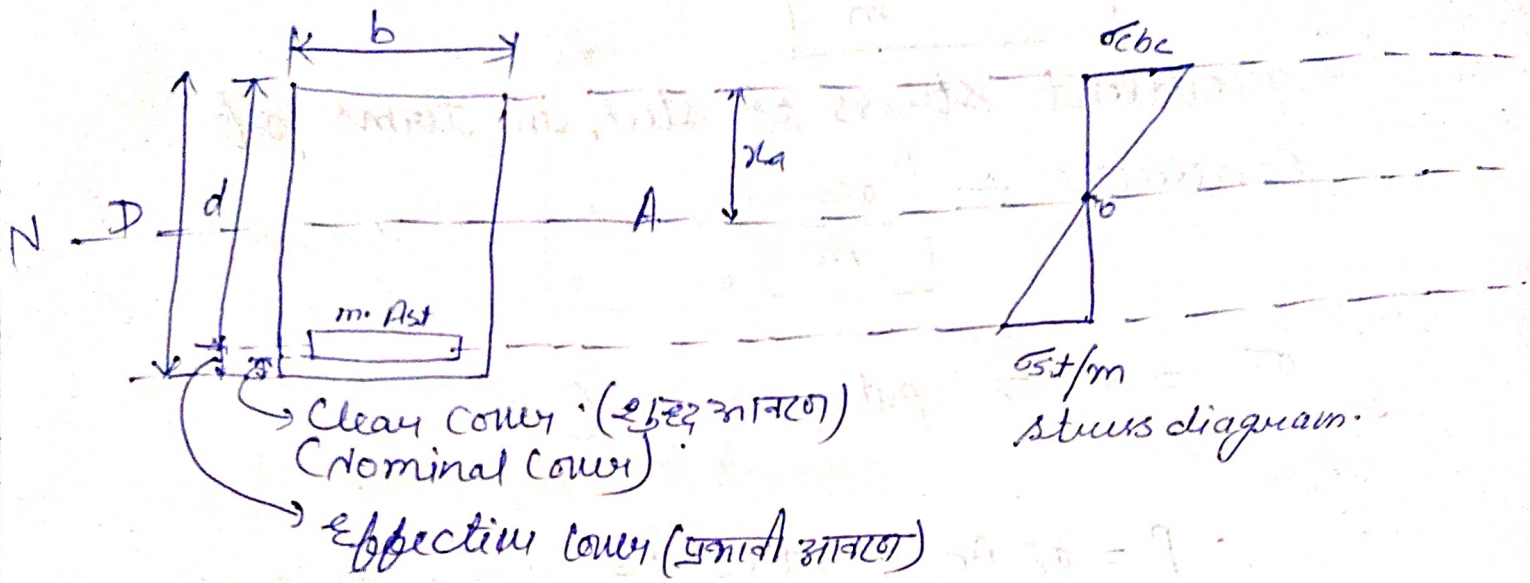 b
σcbc
xa
D
d
N
A
o
m. Ast
σst/m
stress diagram.
Clear cover. (शुद्ध आवरण)
(Nominal Cover)
Effective cover (प्रभावी आवरण)